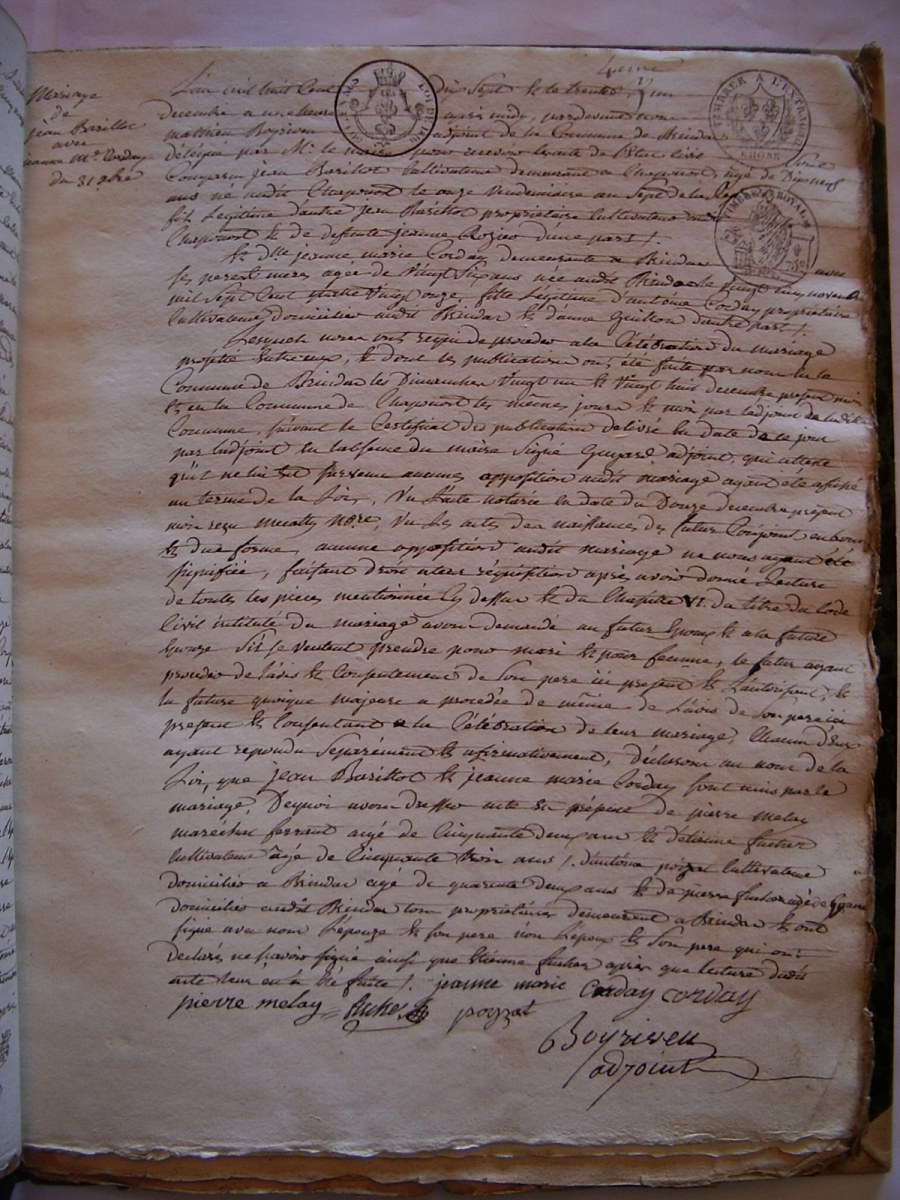 Mariage
de
jean Barillot
avec
jeanne Mie Corday
du 31 xbre
L'an mil huit Cent dix Sept & le trente un
decembre a une heure après midy, pardevant nous
Matthieu Boyriven adjoint de la Commune de Brindas
délégué par Mr le maire pour recevoir les actes de l'état civil
Comparu jean Barillot Cultivateur demeurant a Chaponost, agé de Dix neuf
ans né audit Chaponost le onze Vendemiaire an Sept de la
fils Légitime d'autre jean Barillot propriétaire Cultivateur
Chaponost & de deffunte jeanne Rozier d'une part /.
& dlle jeanne marie Corday demeurante a Brindas avec
ses pere et mere, agée de Vingt Six ans née audit Brindas le Vingt cinq novembre
mil Sept Cent quatre Vingt onze, fille Légitime d'antoine Corday propriétaire
Cultivateur domicilier audit Brindas & d'anne Guillon d'autre part /.
Lesquels nous ont requis de proceder a la Célébration du mariage
projetté entre eux, & dont les publications ont été faites par nous en la
Commune de Brindas les Dimanches Vingt un & Vingt huit decembre present mois
& en la Commune de Chaponost les mêmes jours & mois par l'adjoint de ladite
Commune, suivant le Certificat des publications délivré en date de ce jour
par l'adjoint en l'absence du maire Signé adjoint, qui atteste
qu'il ne lui est survenu aucune opposition audit mariage ayant été affiché
au terme de la Loi, Vu l'acte notarié en date du Douze decembre present
mois reçu nore, Vu les actes de naissances des futurs Conjoints en bonne
& due forme, aucune opposition audit mariage ne nous ayant été
signifiée, faisant droit a leur réquisition après avoir donné lecture
de toutes les pieces mentionnée Cy dessus & du Chapitre VI. du titre du Code
Civil intitulé du mariage avons demandé au futur Epoux & a la future
Epouze S'ils se veulent prendre pour mari & pour femme, le futur ayant
procédé de l'avis & Consentement de Son pere ici present & l'autorisant, &
la future quoique majeure a procedée de même de l'avis de Son pere ici
present & Consentant a la Célébration de leur mariage, Chacun d'eux
ayant repondu Separément & afirmativement, déclarons au nom de la
Loi, que jean Barillot & jeanne marie Corday Sont unis par le
mariage, Dequoi avons dressé acte en présence de pierre melay
maréchal ferrant agé de Cinquante deux ans & d'etienne fucher
Cultivateur agé de Cinquante trois ans /. d'antoine poyzat Cultivateur
domicilier a Brindas agé de quarente deux ans & de pierre fucher agé de ans
domicilier audit Brindas tous propriétaires demeurant a Brindas & ont
signé avec nous L'épouze & Son pere non L'époux & Son pere qui ont
declarés ne savoir signé ainsi que Etienne fucher après que lecture dudit
acte leur en a été faite /. jeanne marie Corday corday
pierre melay fucher poyzat
Boyriven
adjoint